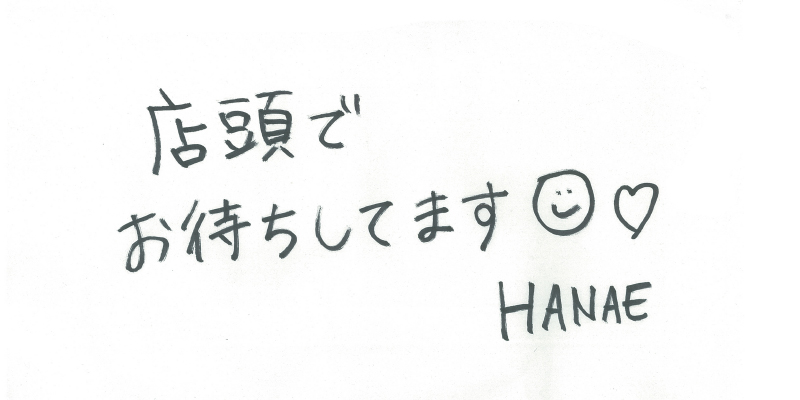 店頭で
お待ちしてます☺♡
HANAE